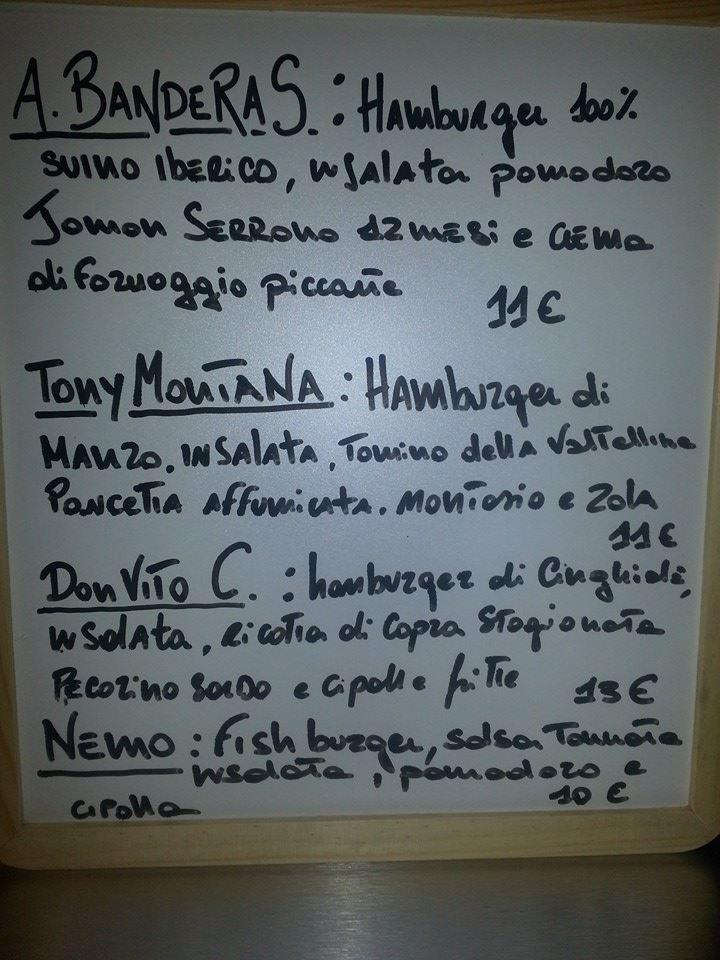 A. BANDERAS. : HAmburger 100%
SUINO IBERICO, INSALATA pomodoro
Jamon SERRANO 12 MESI e CREMA
di Formaggio piccante 11€
Tony MONTANA : HAmburger di
MANZO, INSALATA, Tomino della Valtellina
PANCETTA AFFUMICATA, MONTASIO e ZOLA
11€
Don VITO C. : hamburger di Cinghiale,
INSALATA, RICOTTA di CAPRA Stagionata
PECORINO SARDO e cipolle fritte 13€
NEMO : Fish burger, salsa Tonnata
INSALATA, pomodoro e
cipolla 10 €